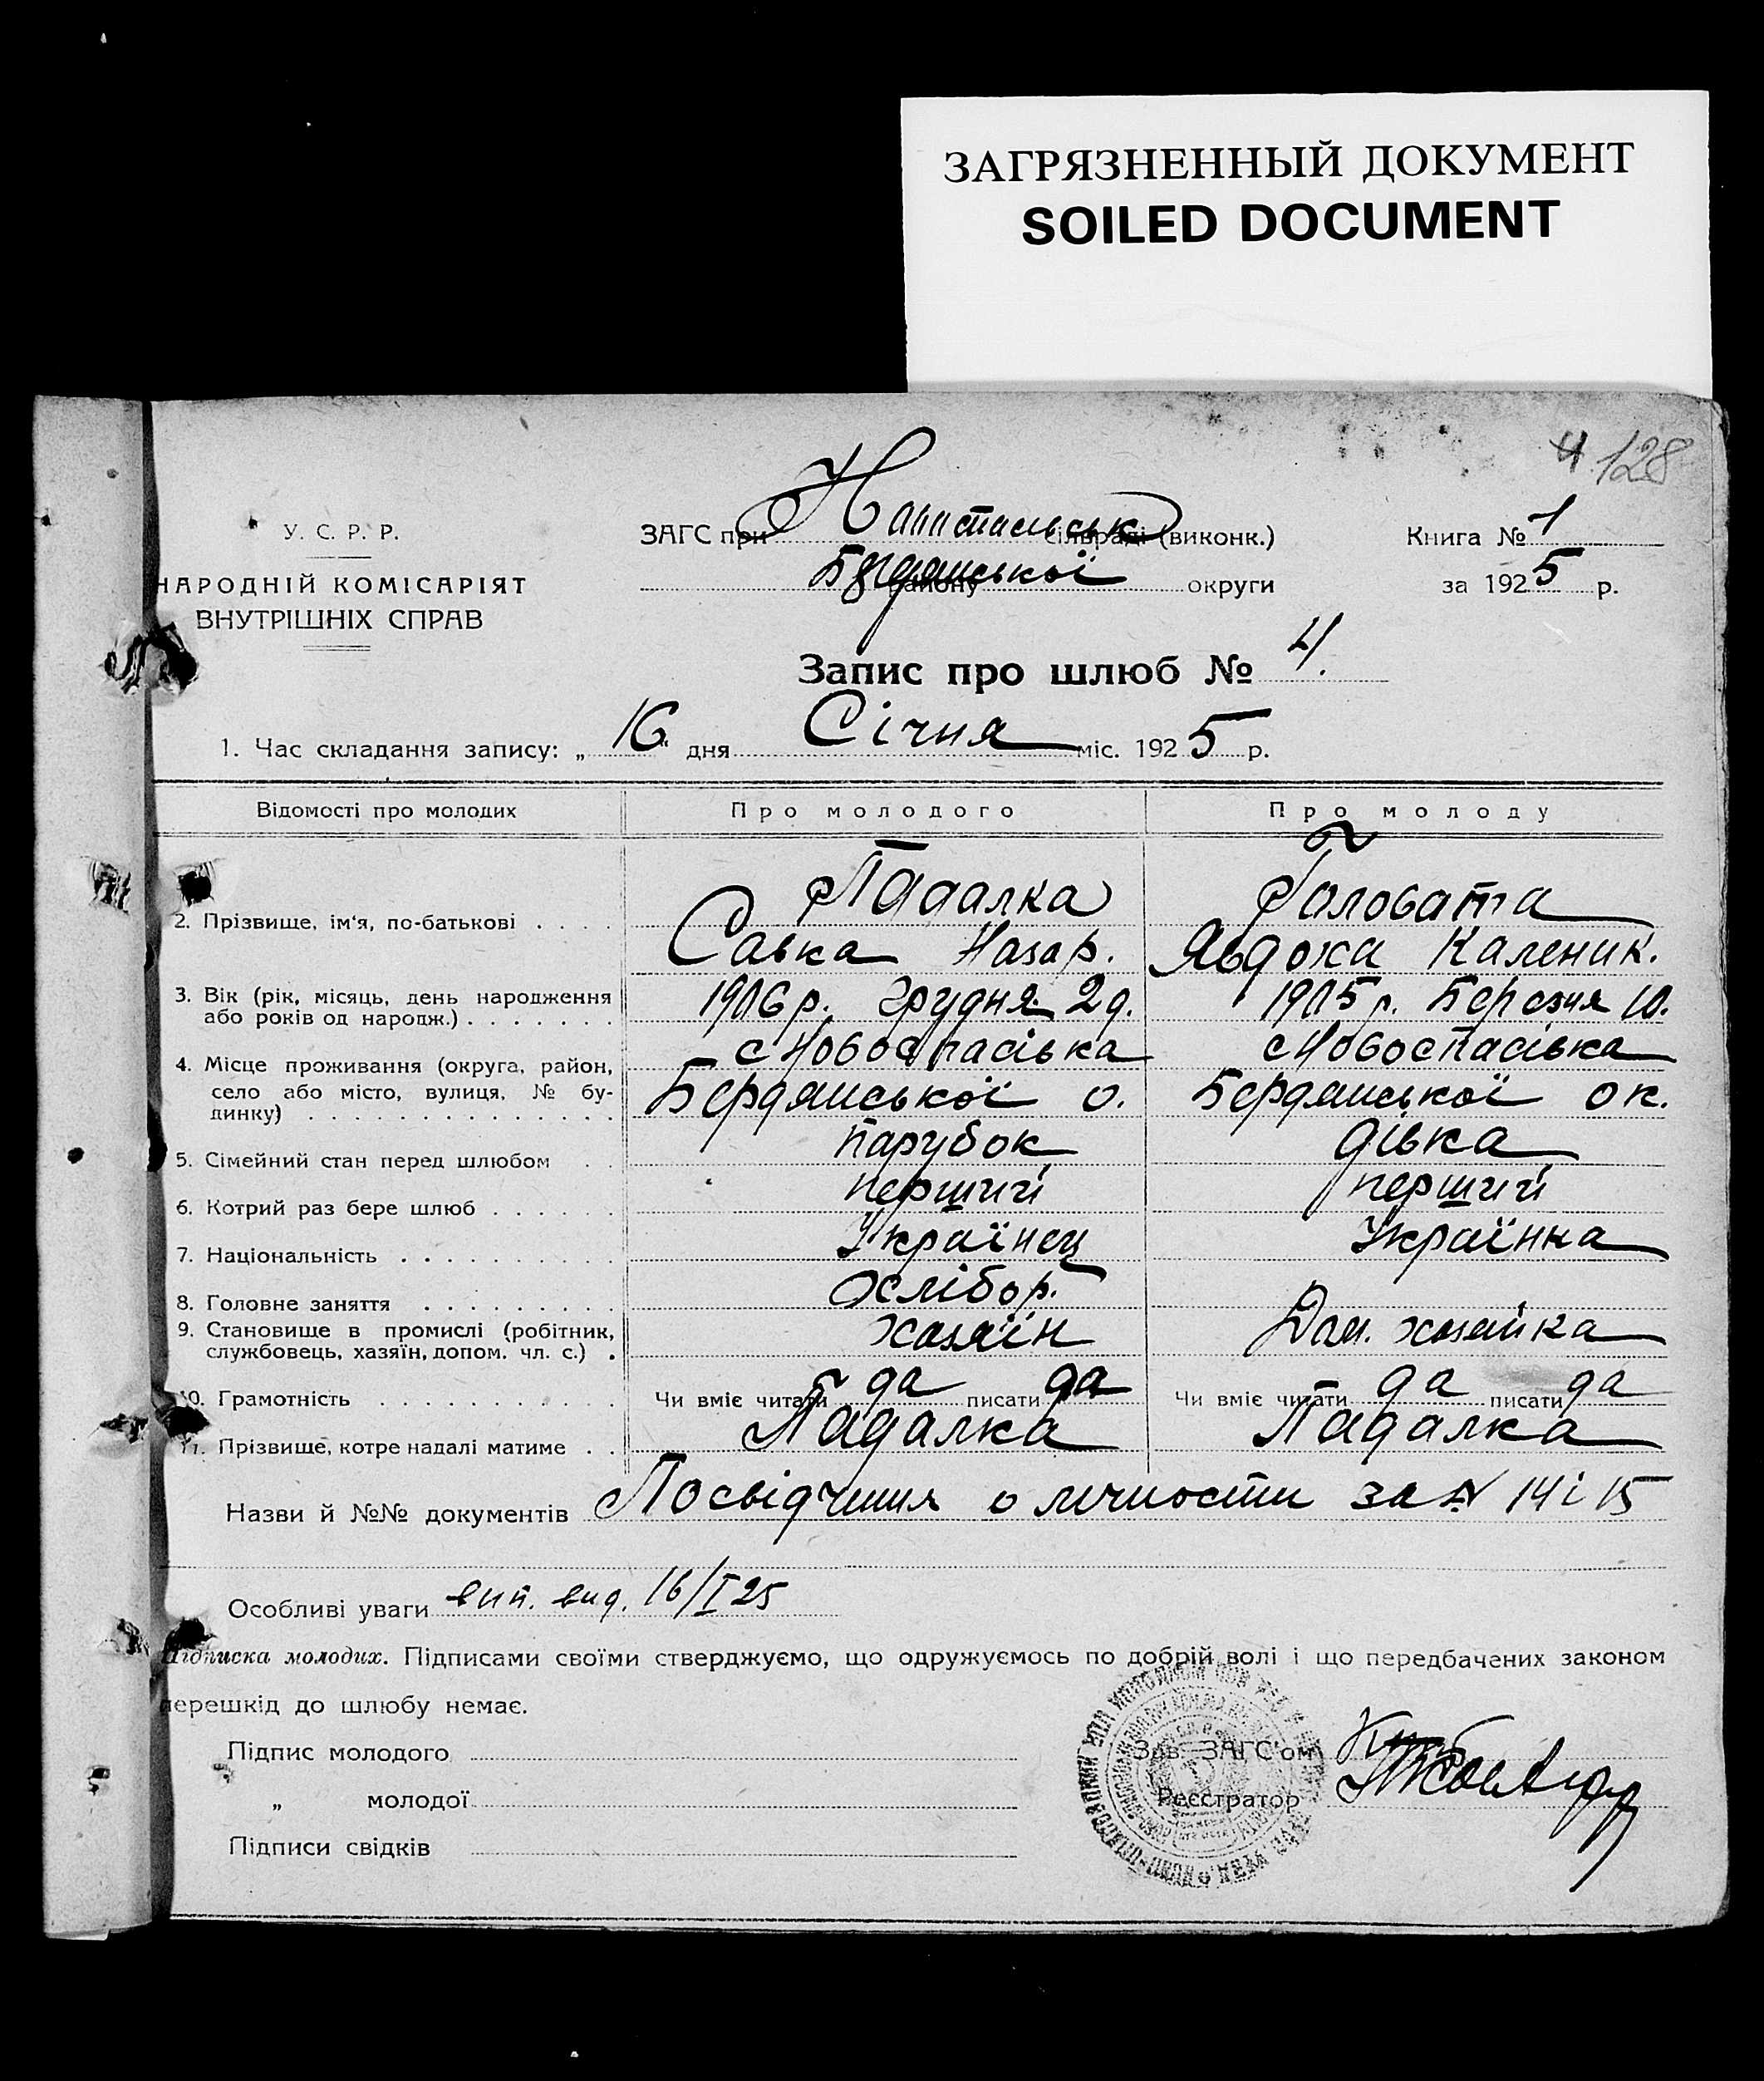 ЗАГРЯЗНЕННЫЙ ДОКУМЕНТ
SOILED DOCUMENT
4 128
У. С. Р. Р.
НАРОДНІЙ КОМІСАРІЯТ
ВНУТРІШНІХ СПРАВ
ЗАГС при сільраді (виконк.)
Бердянської району округи
Книга № 1
за 1925 р.
Запис про шлюб № 4.
1. Час складання запису: „16" дня Січня міс. 1925 р.
Відомості про молодих Про молодого Про молоду
2. Прізвище, ім'я, по-батькові . . . . Падалка Головата
Савка Назар. Явдоха Каленик.
3. Вік (рік, місяць, день народження або років од народж.) . . . . . . . 1906 р. Грудня 2 д. 1905 р. Березня 10.
4. Місце проживання (округа, район, село або місто, вулиця, № будинку) . . . . . . . . . . . . . с Новоспасівка с Новоспасівка
Бердянської о. Бердянської ок.
5. Сімейний стан перед шлюбом . . парубок дівка
6. Котрий раз бере шлюб . . . . . . перший перший
7. Національність . . . . . . . . . . Українец Українка
8. Головне заняття . . . . . . . . . Хлібор.
9. Становище в промислі (робітник, службовець, хазяїн, допом. чл. с.) . хазяїн Дом. хазяйка
10. Грамотність . . . . . . . . . . . Чи вміє читати да писати да Чи вміє читати да писати да
11. Прізвище, котре надалі матиме . . Падалка Падалка
Назви й №№ документів Посвідчення о личности за № 14 і 15
Особливі уваги вип. вид. 16/I 25
Підписка молодих. Підписами своїми стверджуємо, що одружуємось по добрій волі і що передбачених законом
перешкід до шлюбу немає.
Підпис молодого
„ молодої
Підписи свідків
Зав. ЗАГС'ом
Реєстратор